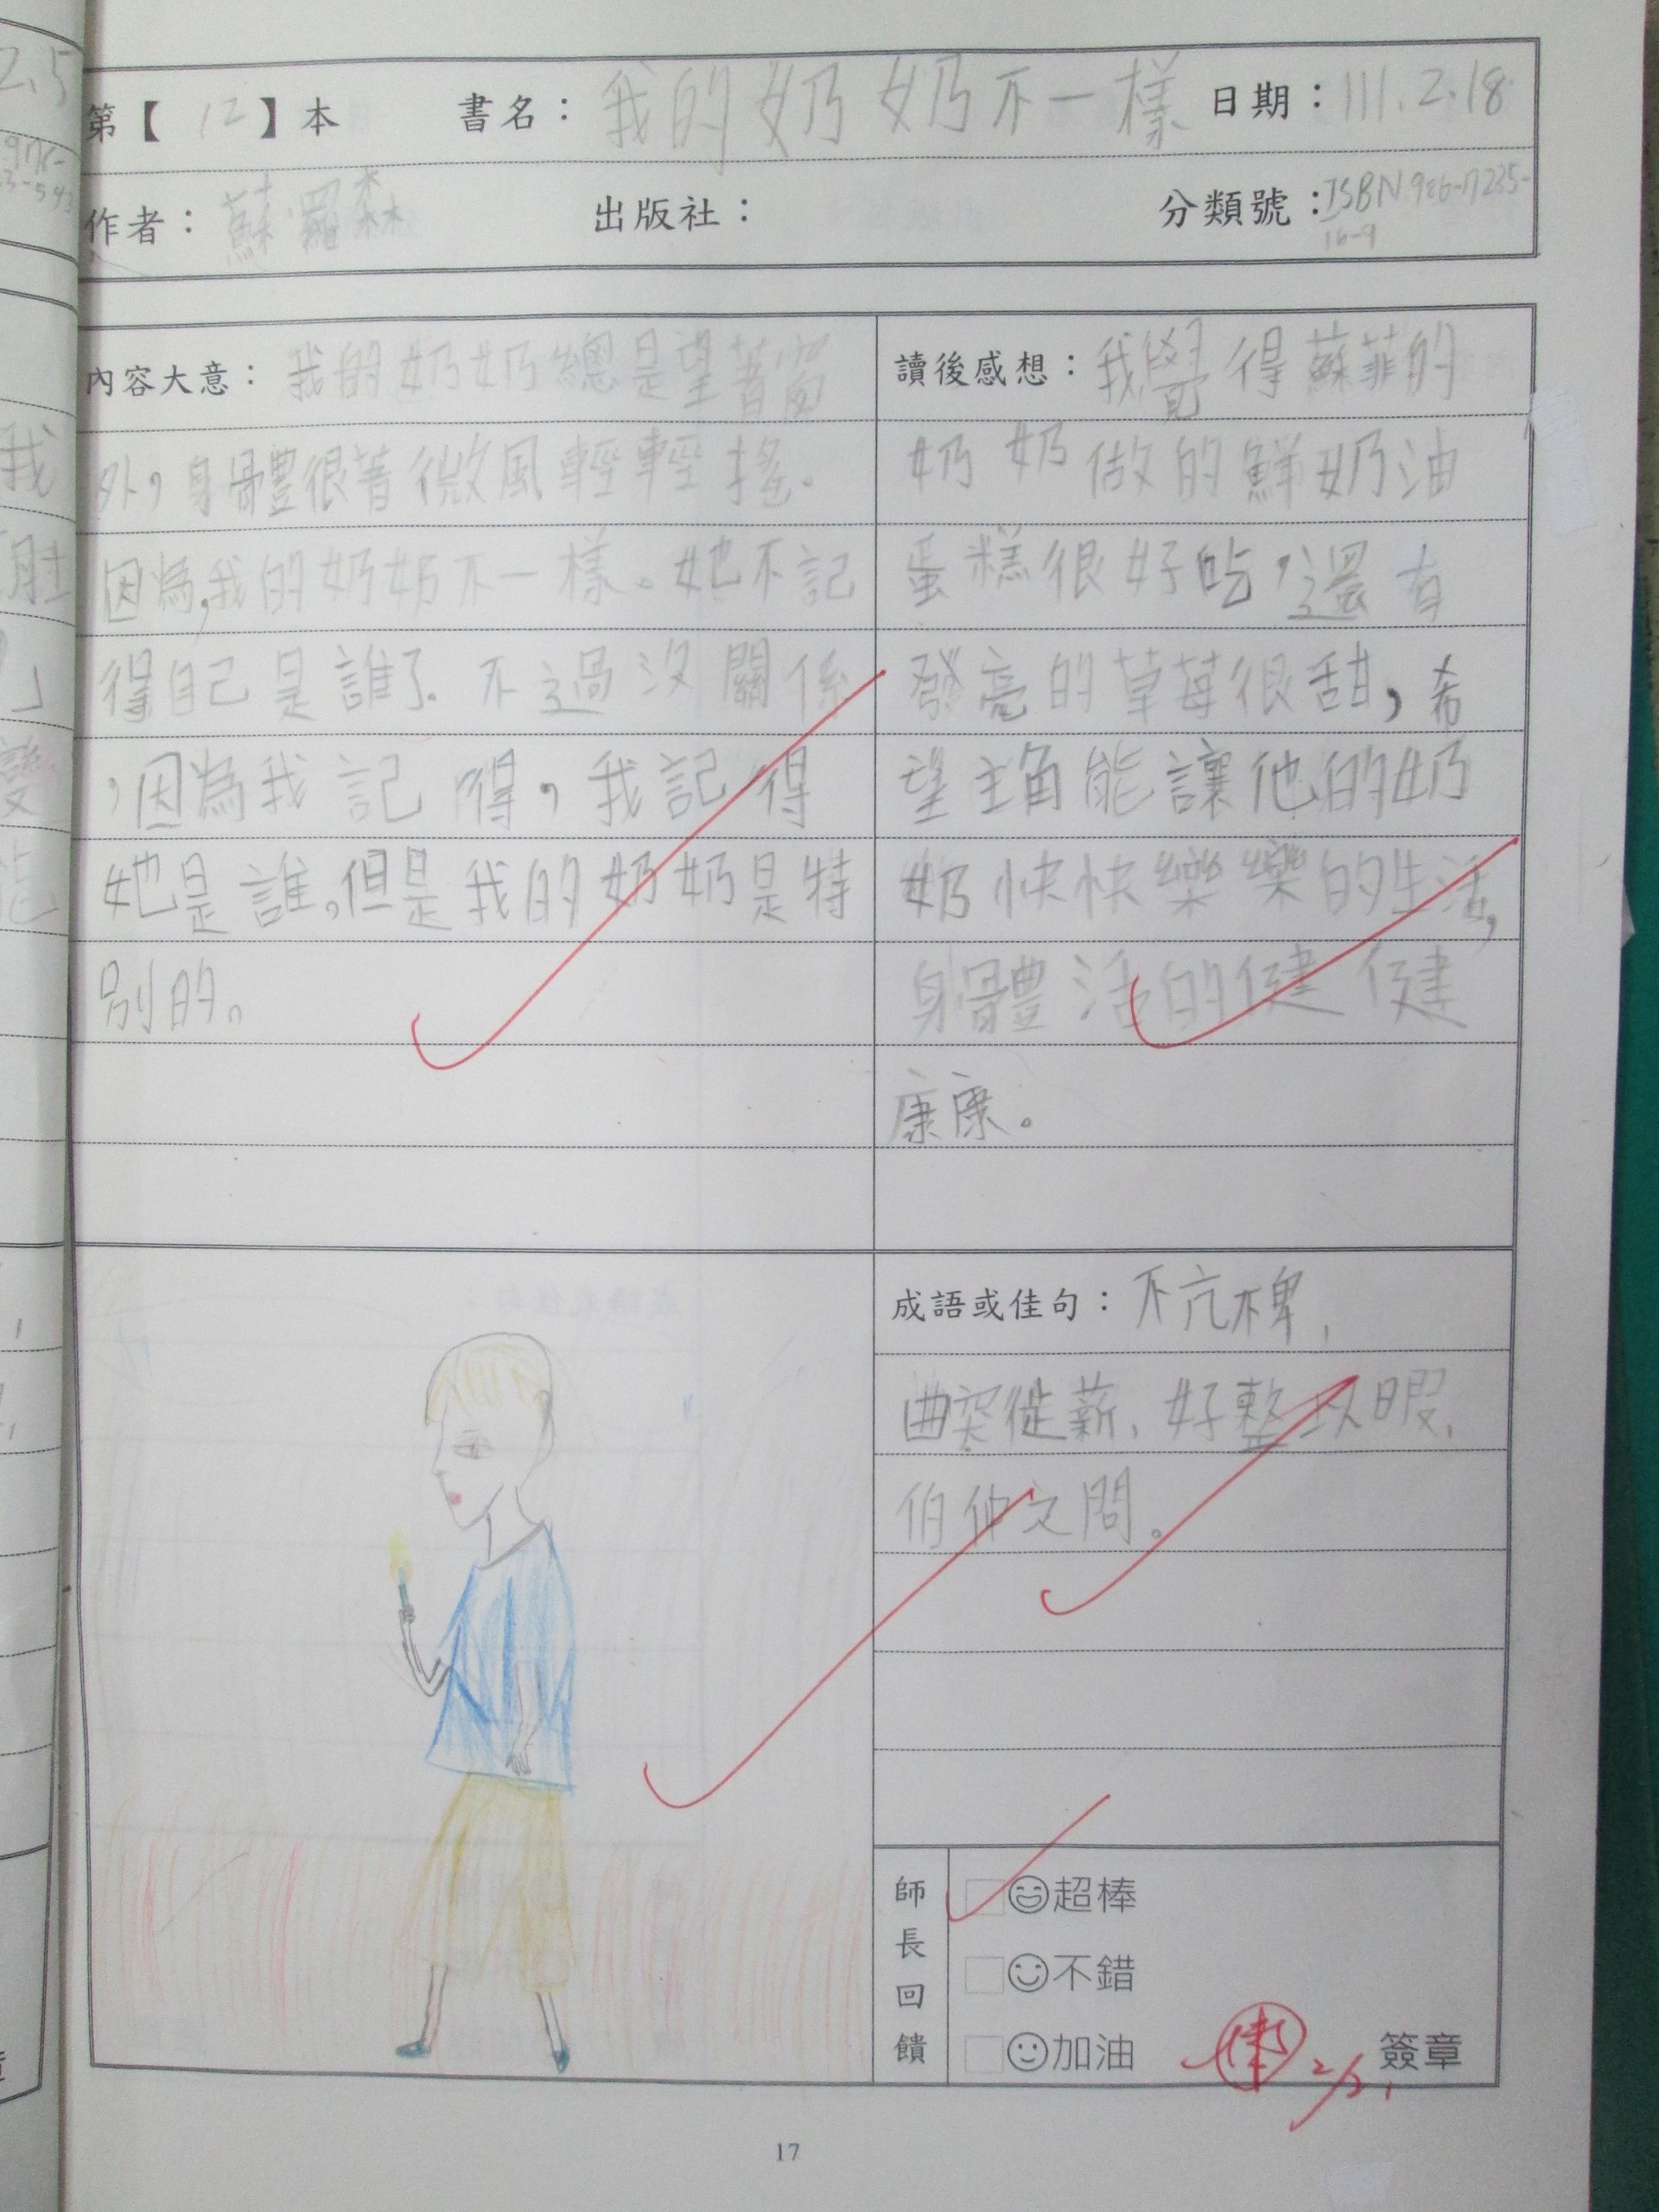 第【 12 】本 書名：我的奶奶不一樣 日期：111.2.18
作者：蘇．羅森 出版社： 分類號：ISBN986-7235-
16-9
內容大意：我的奶奶總是望著窗
外，身體很著微風輕輕搖。
因為，我的奶奶不一樣。她不記
得自己是誰了。不過沒關係
，因為我記得，我記得
她是誰，但是我的奶奶是特
別的。
讀後感想：我覺得蘇菲的
奶奶做的鮮奶油
蛋糕很好吃，還有
發亮的草莓很甜，希
望主角能讓他的奶
奶快快樂樂的生活，
身體活的健健
康康。
成語或佳句：不亢不卑、
曲突徙薪、好整以暇、
伯仲之間。
師長回饋
超棒
不錯
加油 2/21 簽章
17